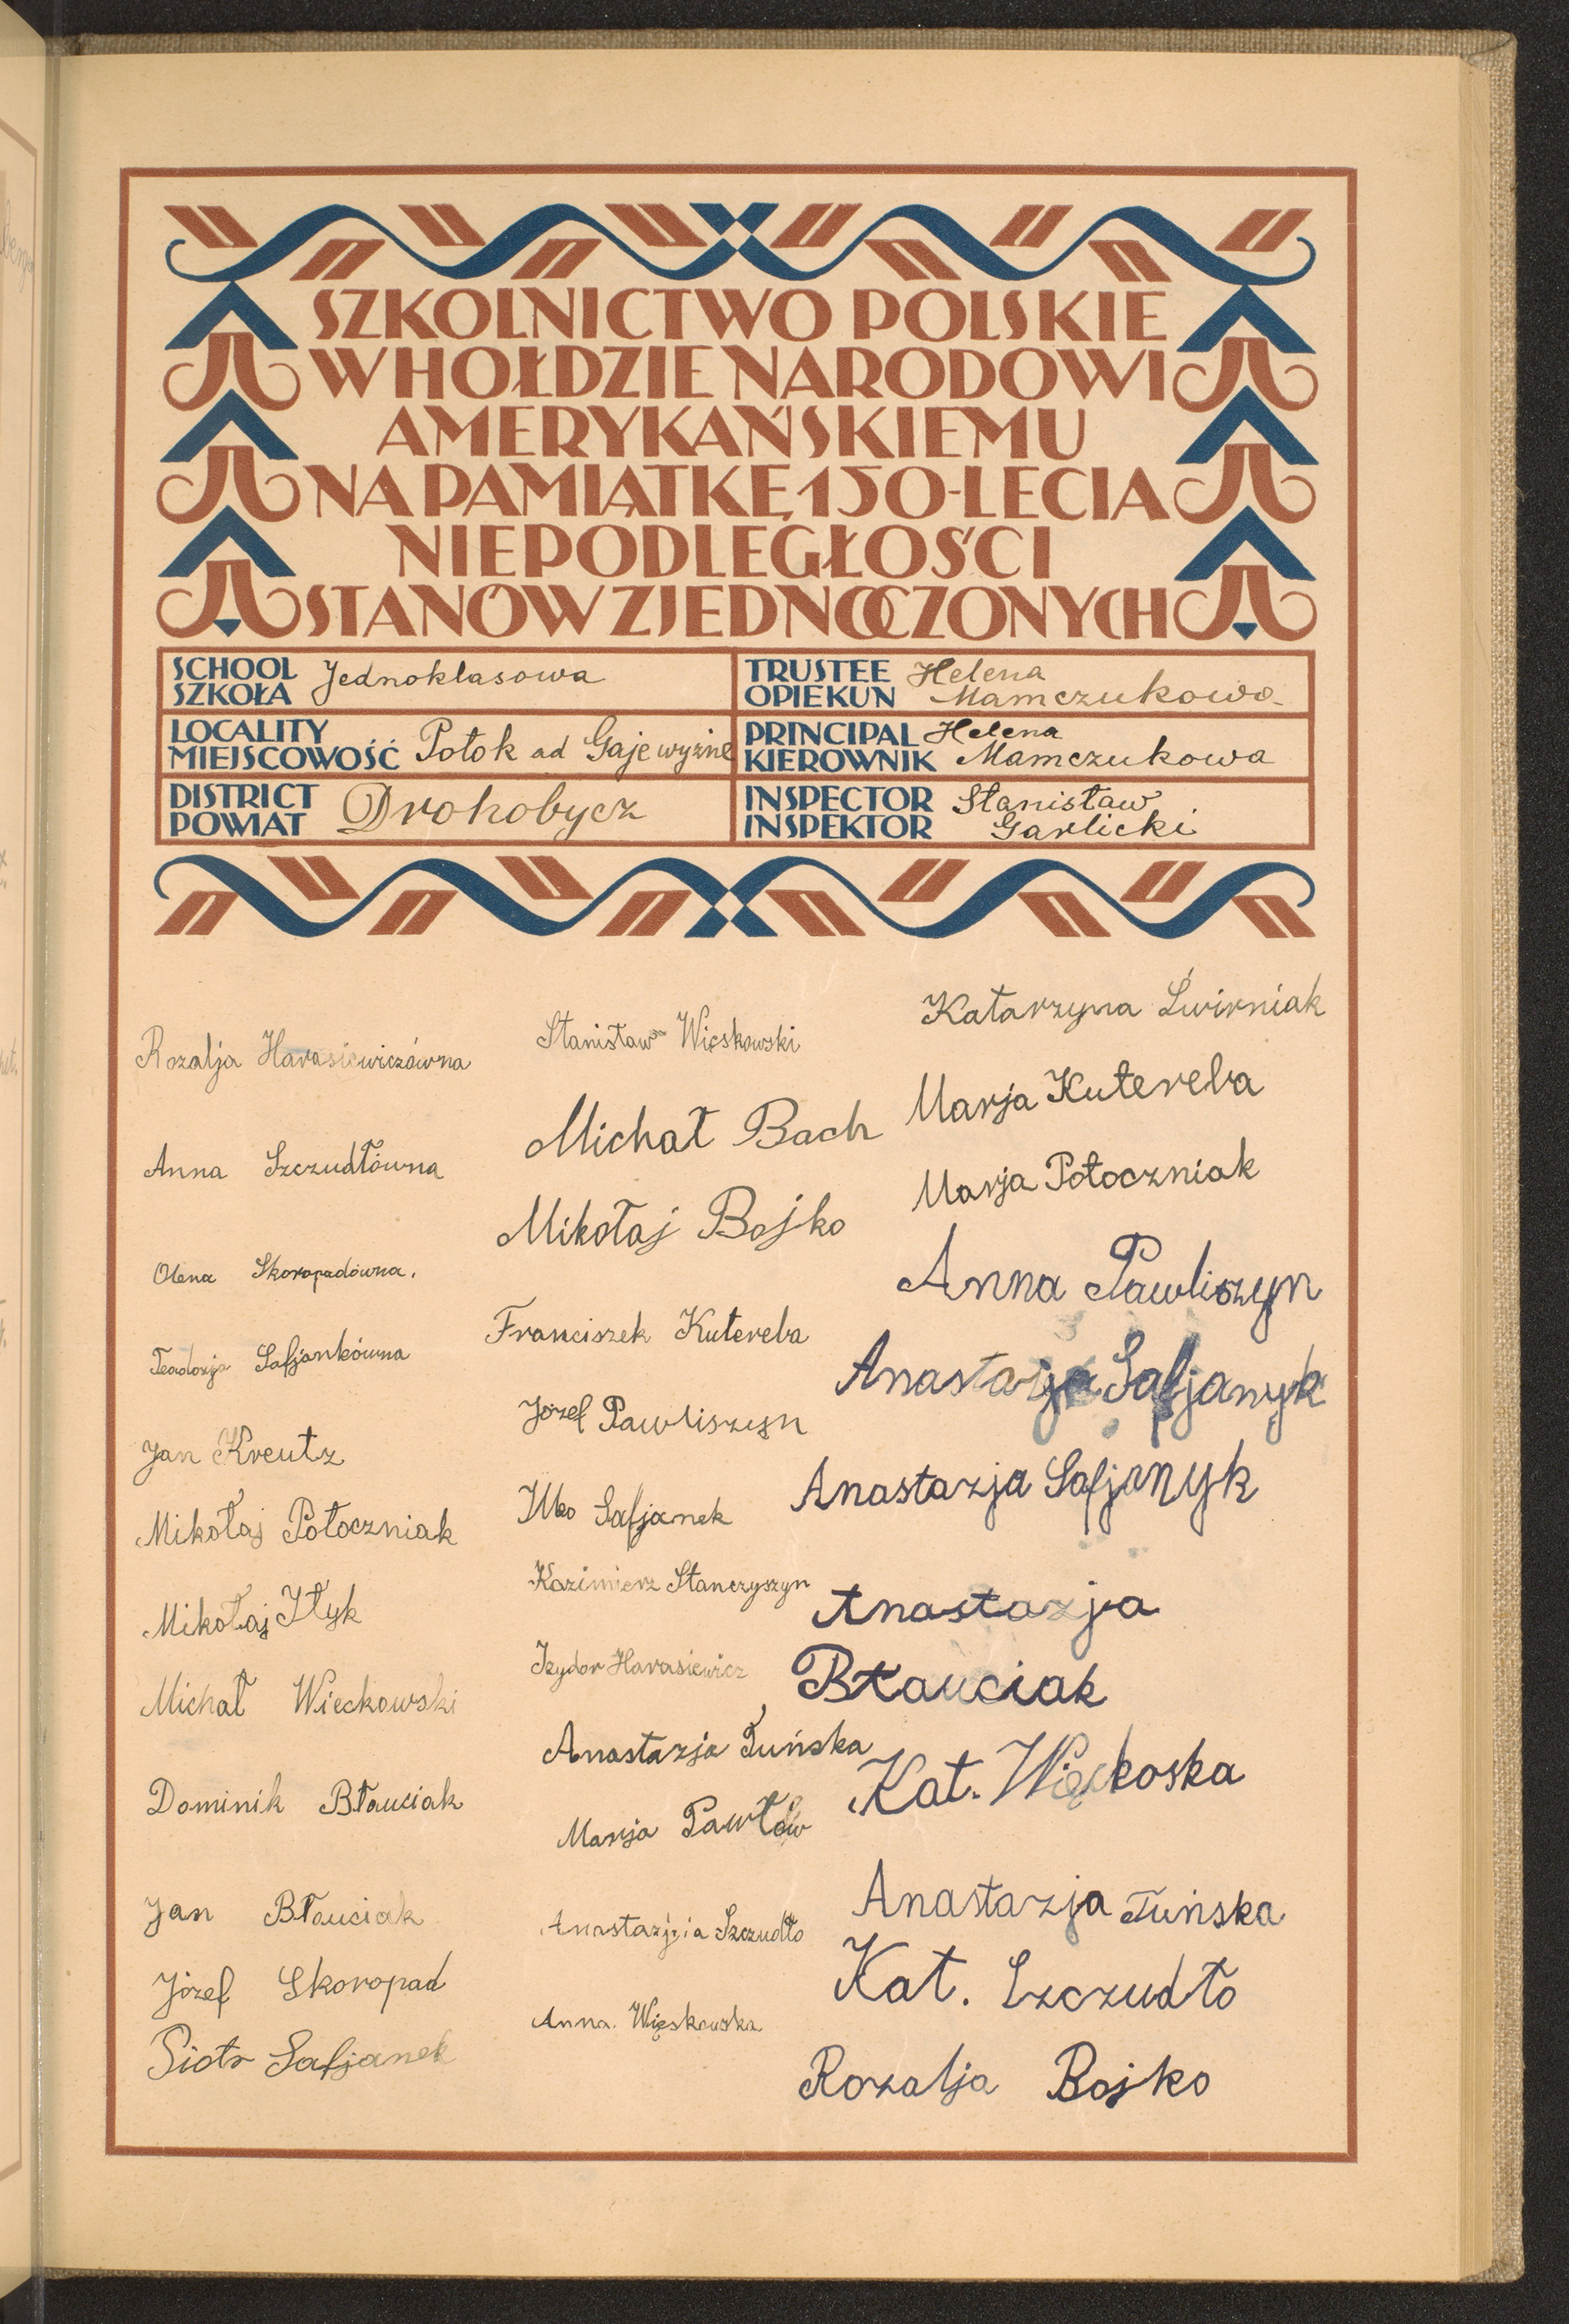 SZKOLNICTWO POLSKIE
W HOŁDZIE NARODOWI
AMERYKAŃSKIEMU
NA PAMIĄTKĘ 150-LECIA
NIEPODLEGŁOŚCI
STANÓW ZJEDNOCZONYCH
SCHOOL
SZKOŁA Jednoklasowa
TRUSTEE Helena
OPIEKUN Mamczukowa
LOCALITY
MIEJSCOWOŚĆ Potok ad Gaje wyżne
PRINCIPAL Helena
KIEROWNIK Mamczukowa
DISTRICT
POWIAT Drohobycz
INSPECTOR Stanisław
INSPEKTOR Garlicki
Rozalja Harasiewiczówna
Anna Szczudłówna
Olena Skoropadówna.
Teodozja Safjankówna
Jan Kreutz
Mikołaj Potoczniak
Mikołaj Iłyk
Michał Wieckowski
Dominik Bławciak
Jan Bławciak
Józef Skoropad
Piotr Safjanek
Stanisław Więskowski
Michał Bach
Mikołaj Bojko
Franciszek Kutereba
Józef Pawliszyn
Safjanek
Kazimierz Stanczyszyn
Izydor Harasiewicz
Anastazja Tuńska
Marja Pawłów
Szczudło
Anna. Więskowska
Katarzyna Ćwirniak
Marja Kutereba
Marja Potoczniak
Anna Pawliszyn
Anastazja Safjanyk
Anastazja Safjanyk
Anastazja
Bławciak
Kat. Więckoska
Anastazja Tuńska
Kat. Szczudło
Rozalja Bojko